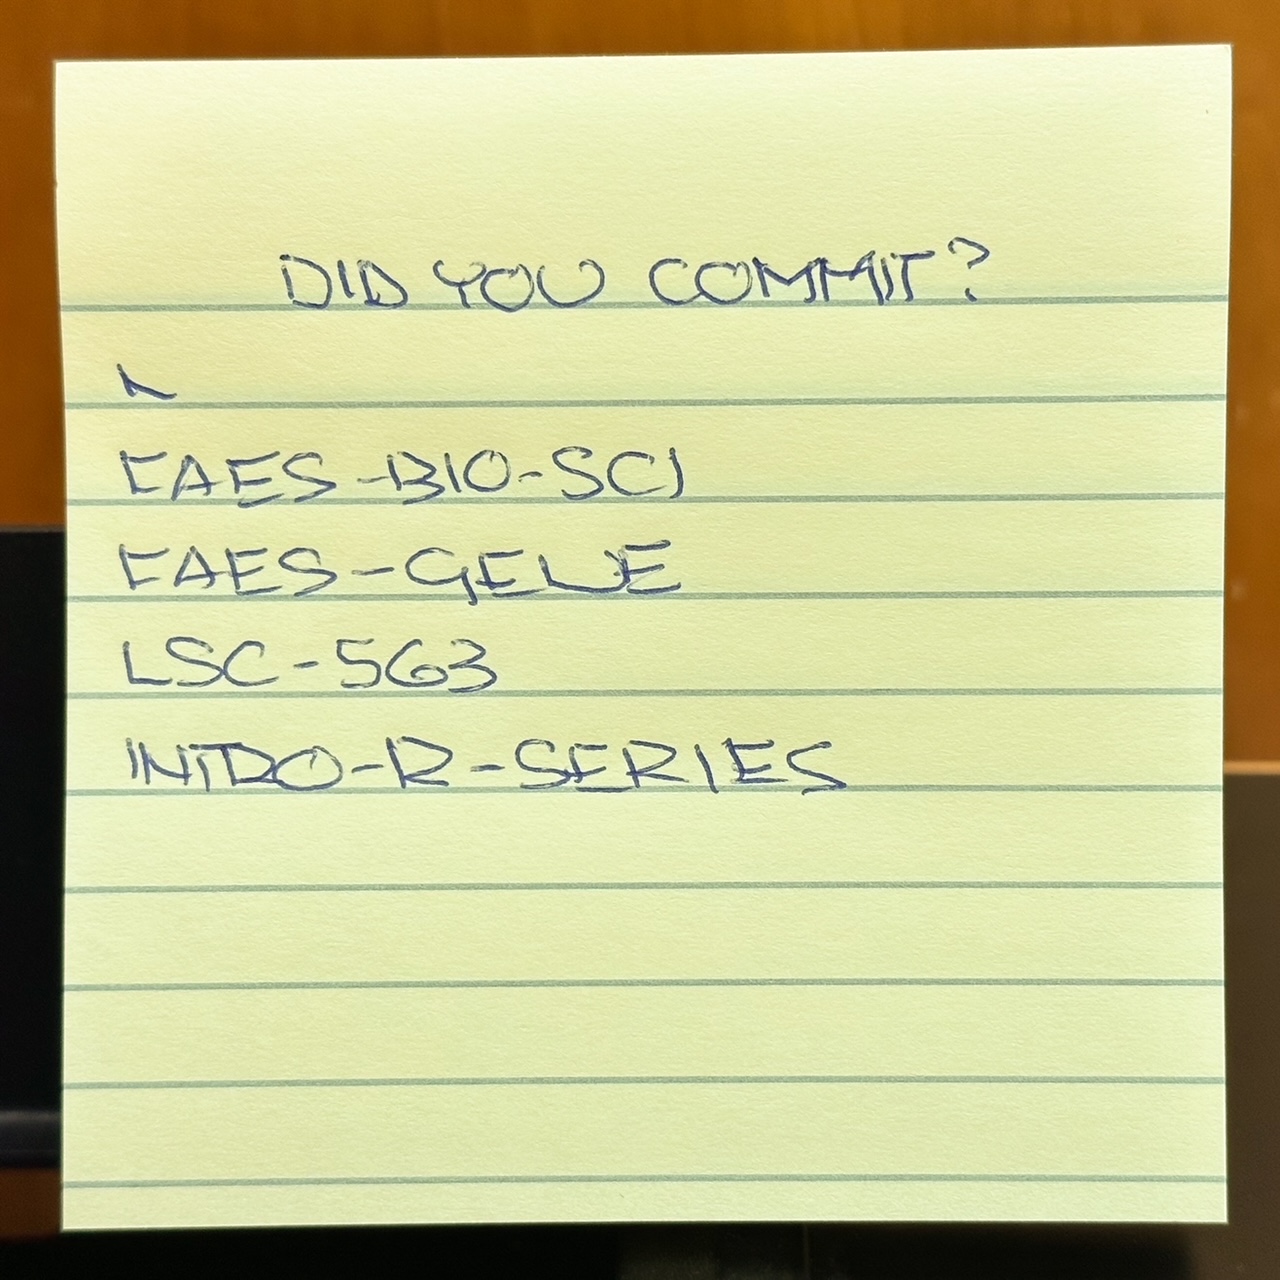 DID YOU COMMIT?
FAES-BIO-SCI
FAES-GENE
LSC-563
INTRO-R-SERIES